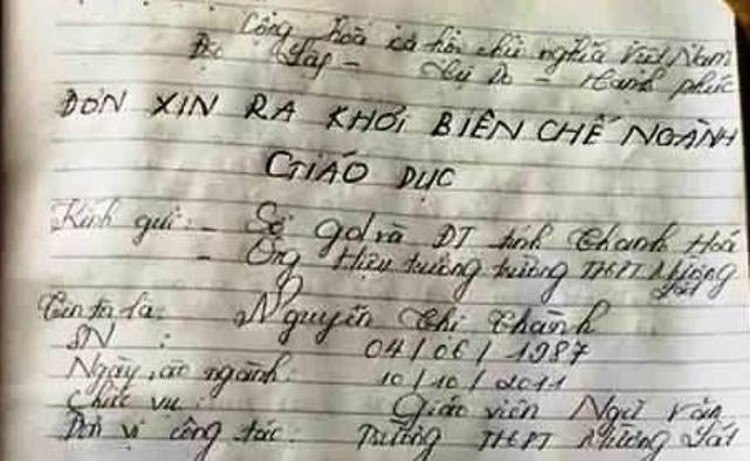 Cộng hoà xã hội chủ nghĩa Việt Nam
Độc lập - Tự Do - Hạnh phúc
ĐƠN XIN RA KHỎI BIÊN CHẾ NGÀNH
GIÁO DỤC
Kính gửi: - Sở gd và ĐT tỉnh Thanh Hoá
- Ông Hiệu trưởng trường THPT Mường
Lát
Tên ta là: Nguyễn Thị Thành
SN : 04/06/1987
Ngày vào ngành: 10/10/2011
Chức vụ: Giáo viên Ngữ văn
Đơn vị công tác: Trường THPT Mường Lát